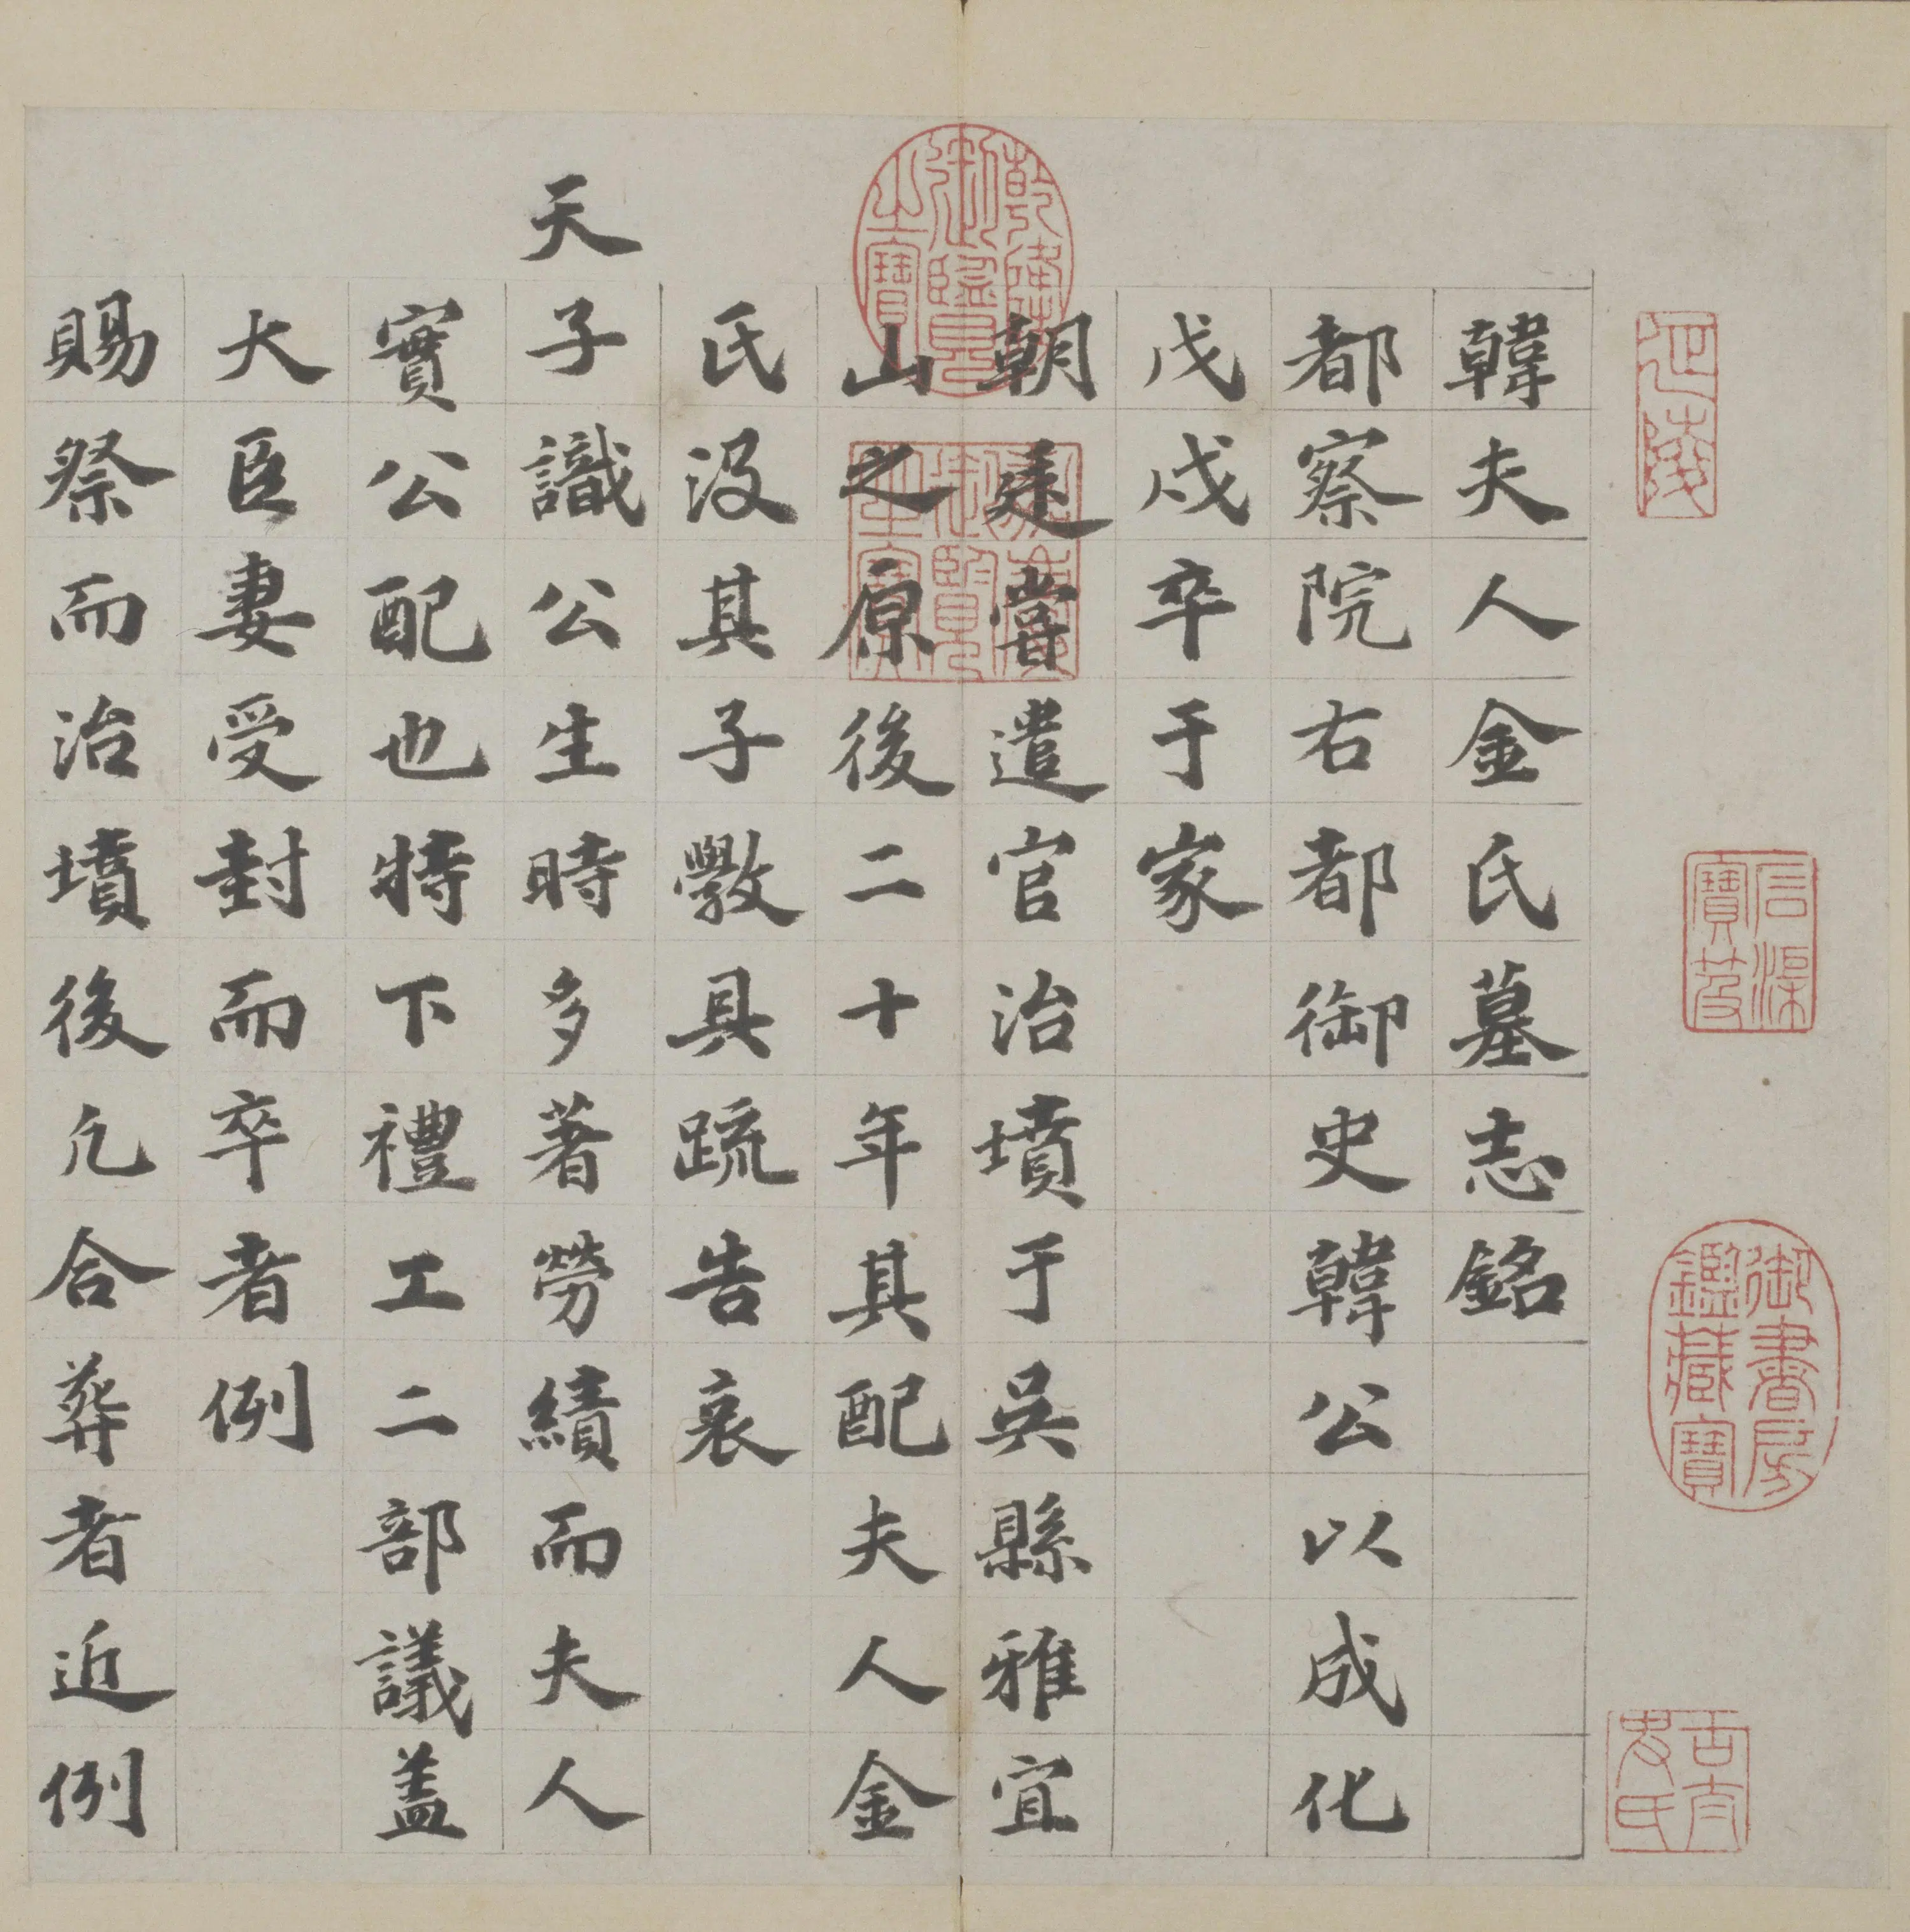 韓夫人金氏墓志銘
都察院右都御史韓公以成化
戊戌卒于家
朝廷嘗遣官治墳于吳縣雅宜
山之原後二十年其配夫人金
氏没其子斆具疏告哀
天子識公生時多著勞績而夫人
實公配也特下禮工二部議蓋
大臣妻受封而卒者例
賜祭而治墳後凡合葬者近例
乾隆御覽之寶
嘉慶御覽之寶
石渠寶笈
御書房鑑藏寶